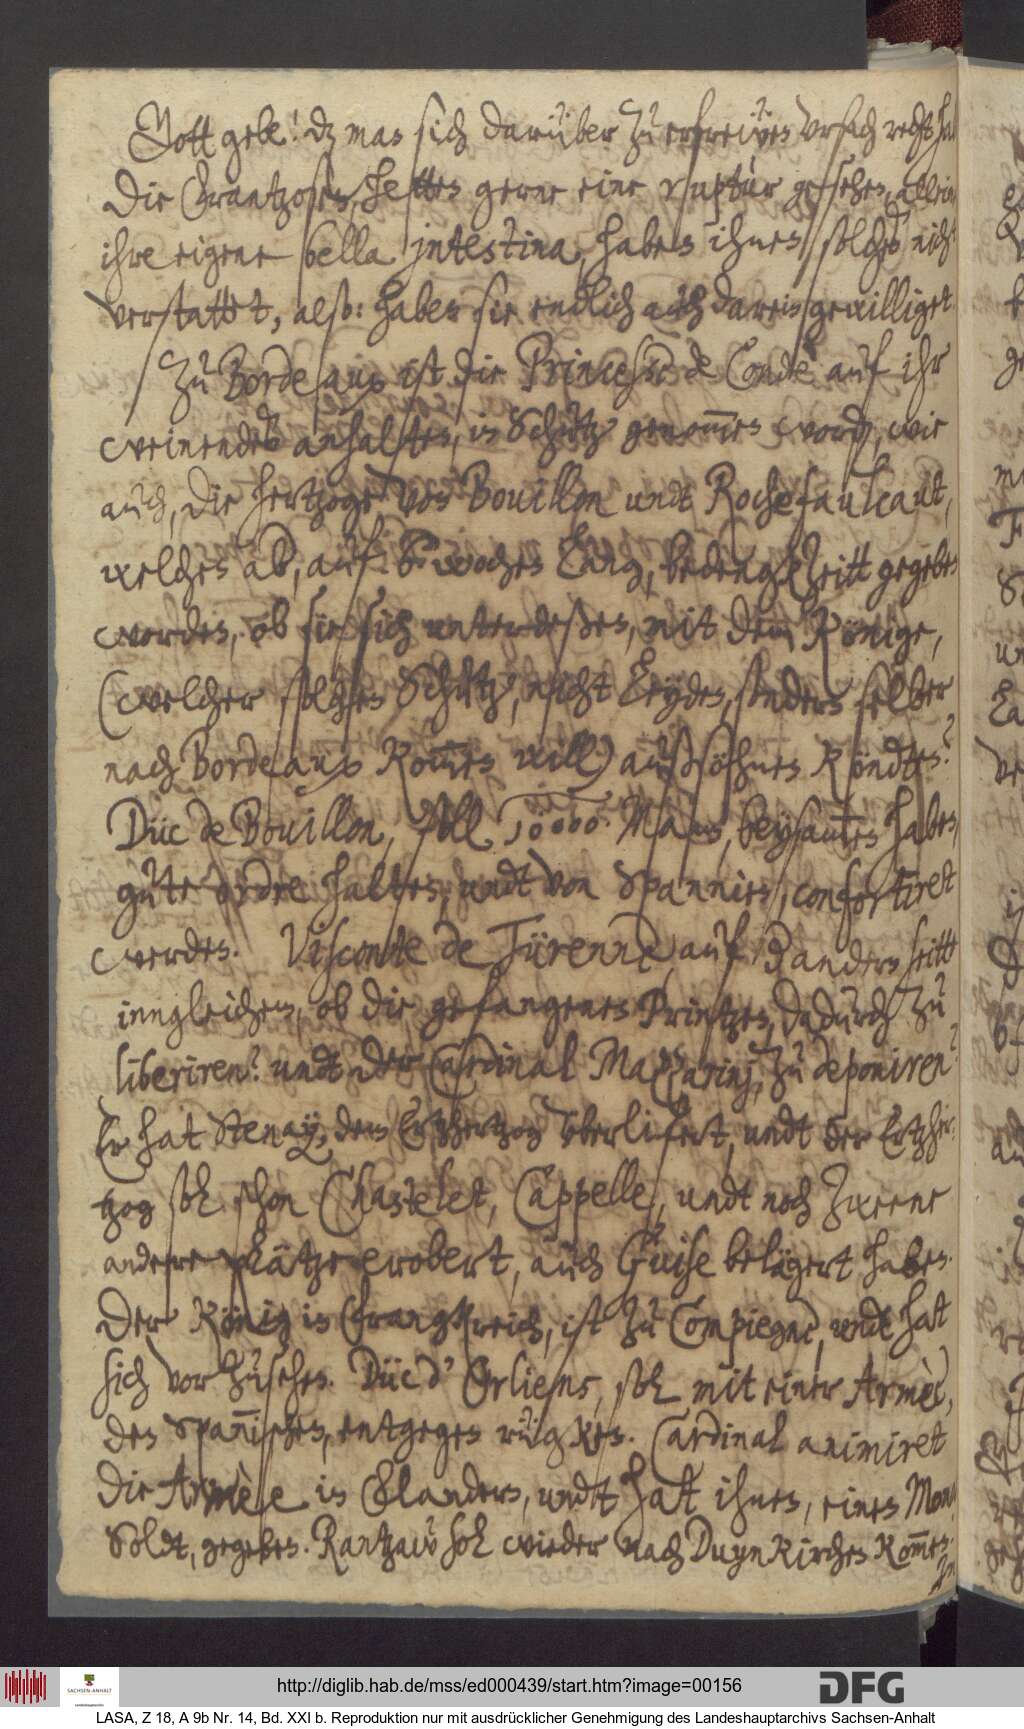 Gott gebe! dz man sich darüber zu erfreẅen vrsach recht hab
Die Frantzosen, hetten gerne eine ruptur gesehen, allein
ihre eigene bella jntestina, haben ihnen solches nicht
verstattet, also: haben sie endlich auch darein gewilliget.
Zu Bordeaux ist die Princesse de Condè auf ihr
weinendes anhalten, in Schutz genommen word, wie
auch, die Hertzoge von Bouillon undt Rochefaulcaut,
welchen ab, auf 6 wochen lang, bedengkZeitt gegeben
worden, ob sie sich unterdeßen, mit dem Könige,
(welcher solchen Schutz, nicht leyden, sondern selber
nach Bordeaux kommen will) außsöhnen köndten?
Düc de Bouillon, soll 10000 Mann, beysamen haben,
gute ordre halten, undt von Spannien, confortiret
werden. Visconte de Türenne, auf d anderen seitt
inngleichen, ob die gefangenen Printzen, dadurch zu
liberiren? undt der Cardinal Mazzarinj, zu deponiren?
Er hat Stenay, dem Ertzhertzog überlifert, undt der Ertzher-
tzog sol schon Chastelet, Cappelle, undt noch zweene
andere plätze erobert, auch Guise belägert haben.
Der König in Frangkreich, ist zu Compiegne, undt hat
sich vorzusehen. Düc d' Orliens, sol mit einer Armèe,
den Spannischen, entgegen rügken. Cardinal animiret
die Armèe in Flandern, undt hatt ihnen, einen Mon
Soldt, gegeben. Rantzaw sol wieder nach Duynkirchen kommen.
http://diglib.hab.de/mss/ed000439/start.htm?image=00156
DFG
SACHSEN-ANHALT
LASA, Z 18, A 9b Nr. 14, Bd. XXI b. Reproduktion nur mit ausdrücklicher Genehmigung des Landeshauptarchivs Sachsen-Anhalt